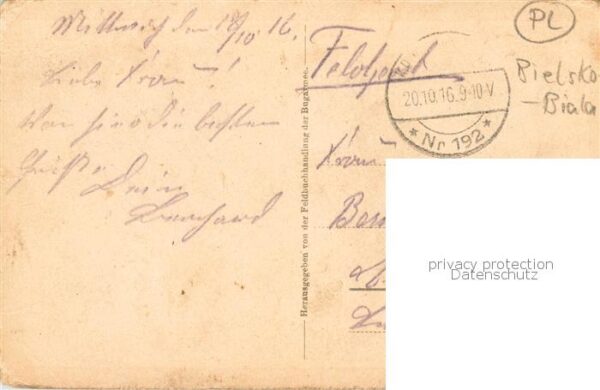 Mittwoch den 18/10 16.
Liebe Frau!
Von hier die besten
Grüße Dein
Bernhard
Herausgegeben von der Feldbuchhandlung der Bugarmee.
Feldpost
20.10.16.9-10V
* Nr 192. *
PL
Bielsko
-Biala
Frau
privacy protection
Datenschutz